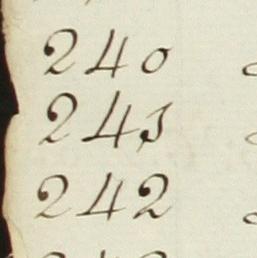 240
241
242